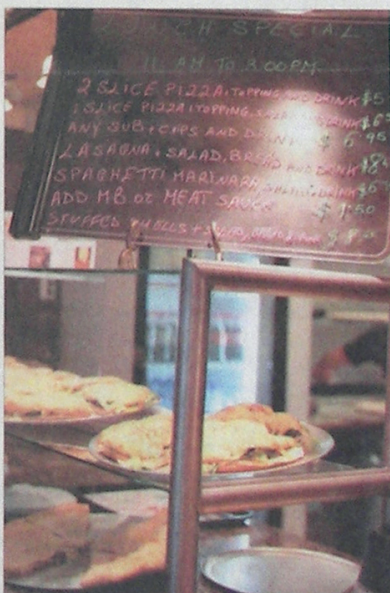 LUNCH SPECIAL
11 AM TO 2:00PM
2 SLICE PIZZA, 1 TOPPING, AND DRINK $5
1 SLICE PIZZA, 1 TOPPING, DRINK $6
ANY SUB, CHIPS AND DRINK $6.95
LASAGNA, SALAD, BREAD AND DRINK $8
SPAGHETTI MARINARA, SALAD, DRINK $6
ADD MB. OR MEAT SAUCE $1.50
STUFFED SHELLS + SALAD, $8